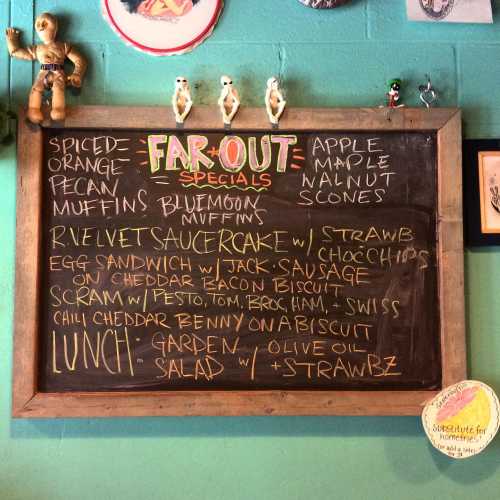 FAR OUT
SPECIALS
SPICED
ORANGE
PECAN
MUFFINS
BLUEMOON
MUFFINS
APPLE
MAPLE
WALNUT
SCONES
R.VELVET SAUCERCAKE w/ STRAWB
CHOC CHIPS
EGG SANDWICH w/ JACK. SAUSAGE
ON CHEDDAR BACON BISCUIT
SCRAM w/ PESTO, TOM, BROC, HAM, + SWISS
CHILI CHEDDAR BENNY ON A BISCUIT
LUNCH: GARDEN OLIVE OIL
SALAD w/ + STRAWBZ
Substitute for
homefries